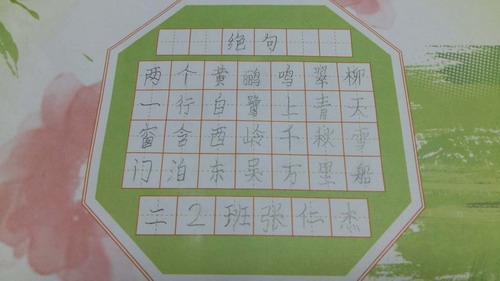 绝句
两个黄鹂鸣翠柳
一行白鹭上青天
窗含西岭千秋雪
门泊东吴万里船
二2班张仁杰